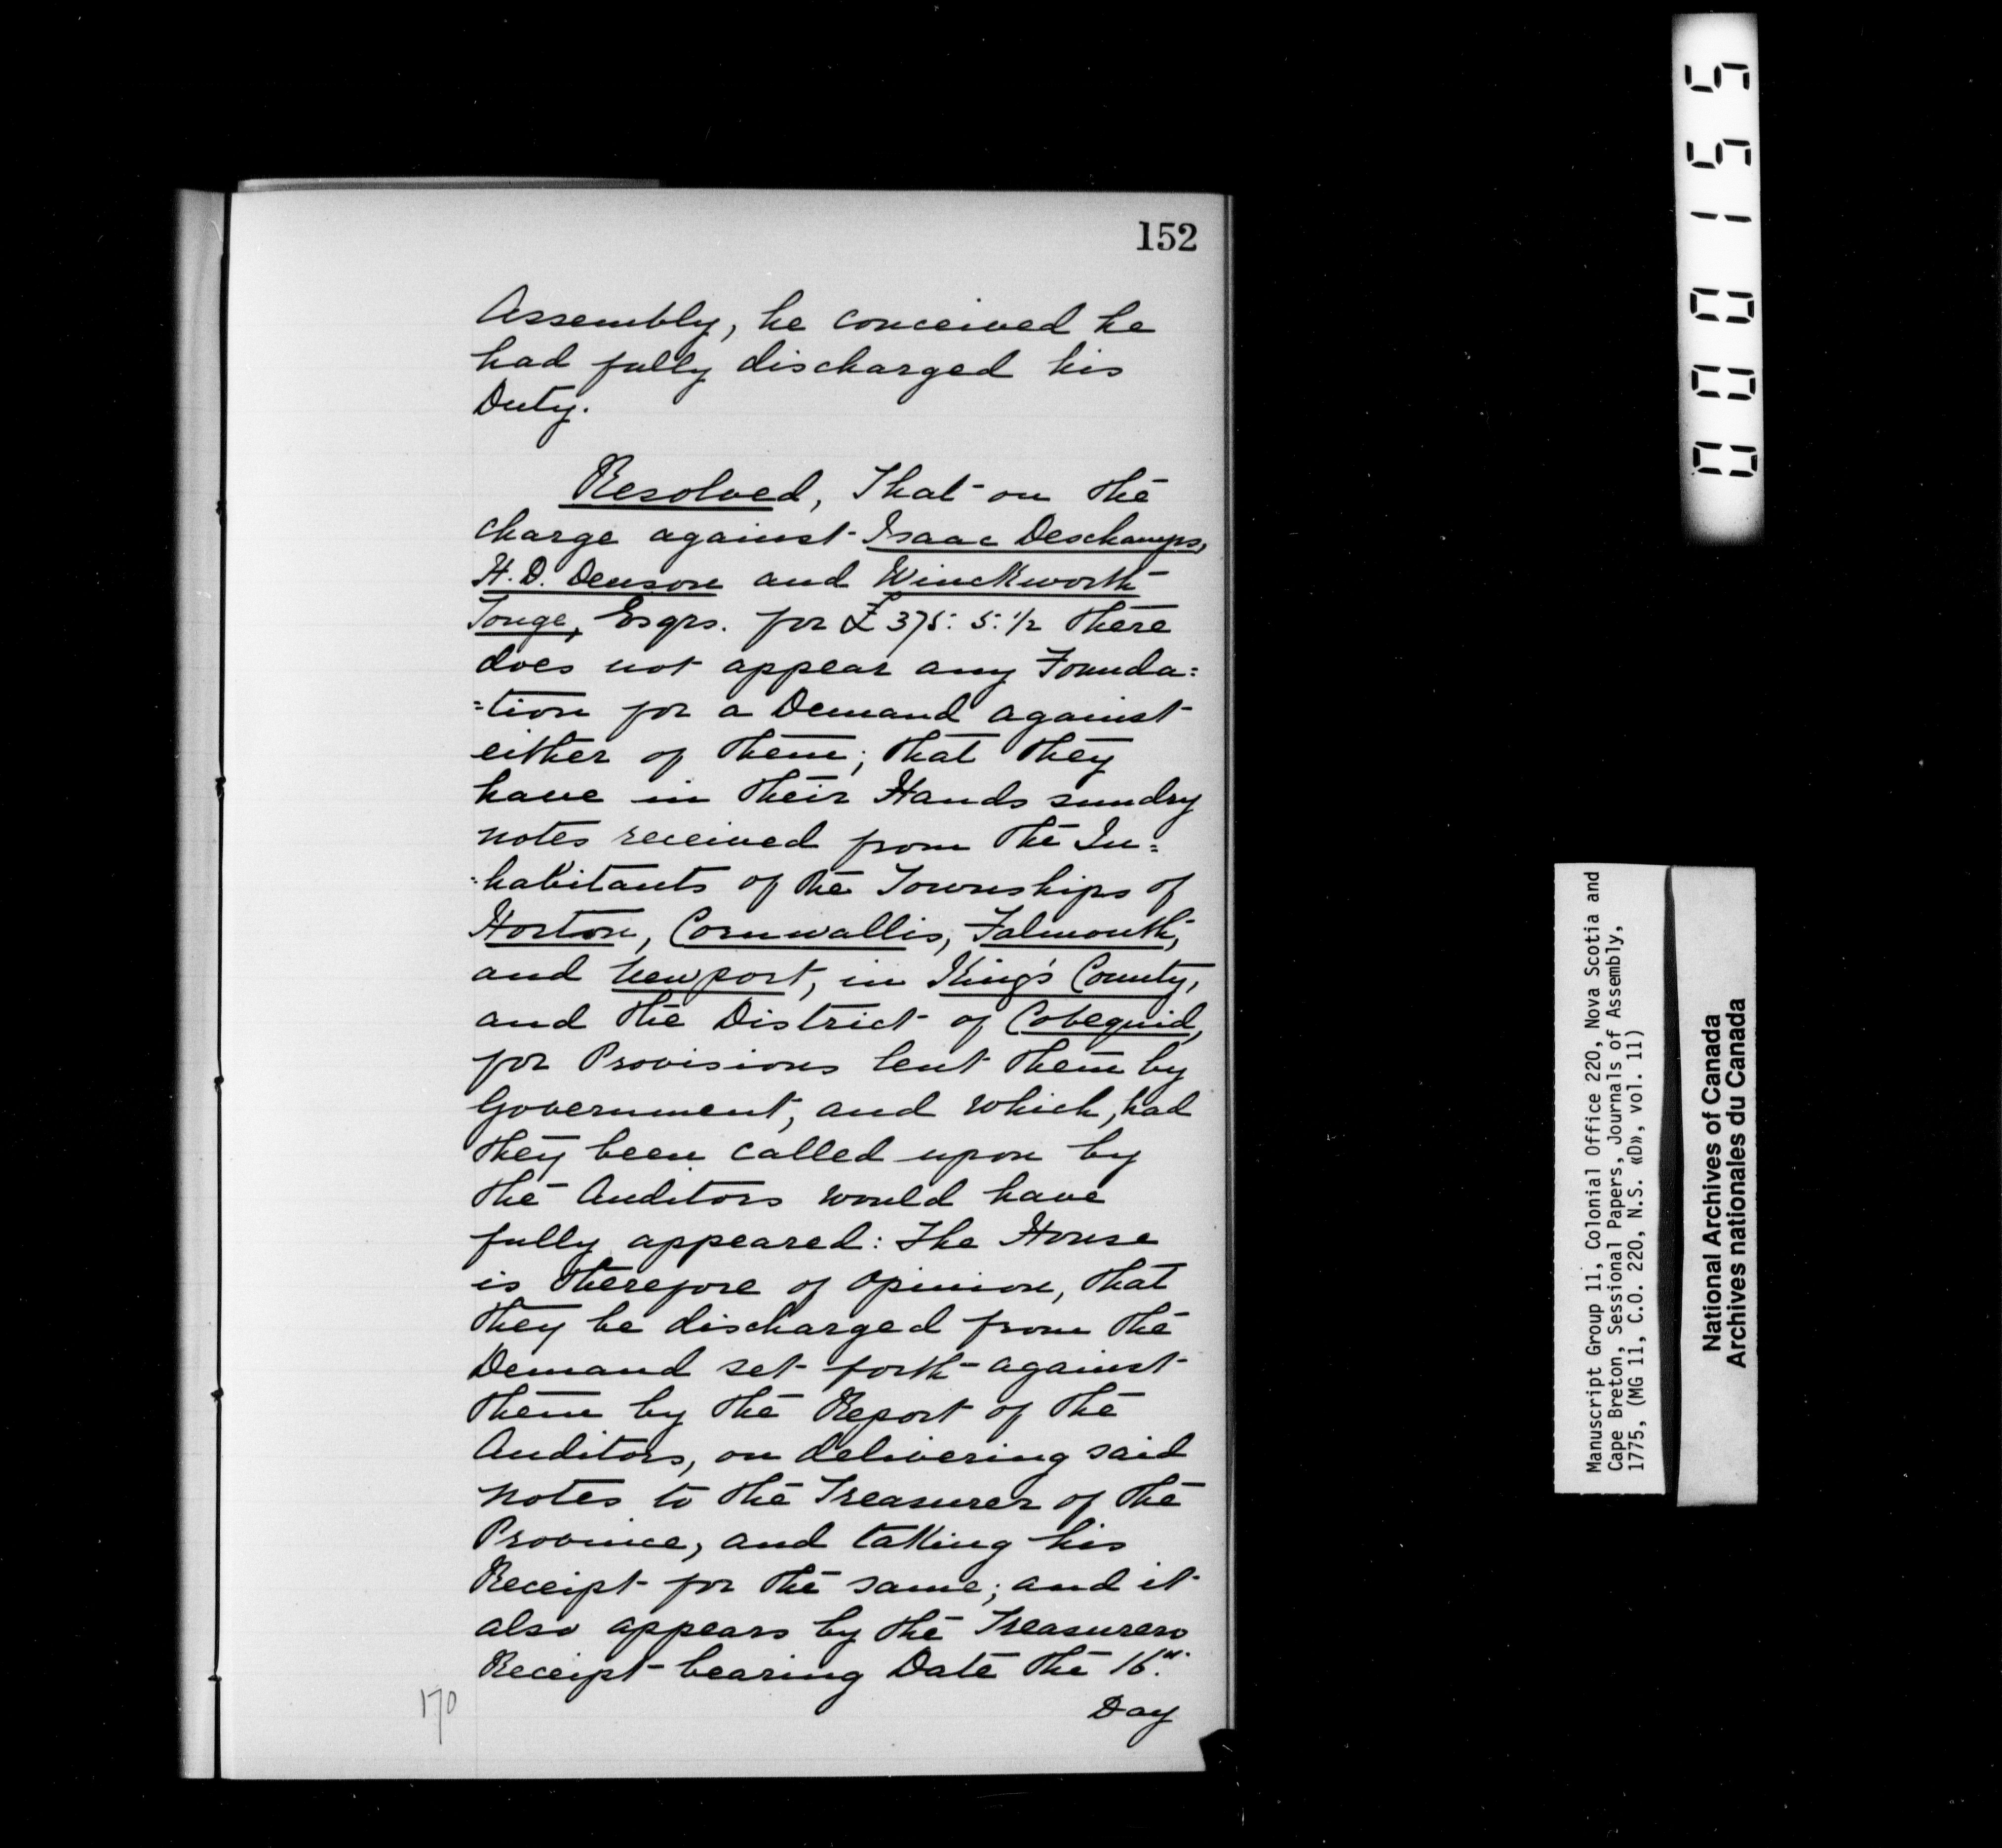 152
Assembly, he conceived he
had fully discharged his
Duty.
Resolved, That on the
charge against Isaac Deschamps,
H. D. Denson and Winckworth
Tonge, Esqrs. for £375: 5: 1/2 there
does not appear any Founda=
=tion for a Demand against
either of them; that they
have in their Hands sundry
notes received from the In=
=habitants of the Townships of
Horton, Cornwallis, Falmouth,
and Newport, in King's County,
and the District of Cobequid,
for Provisions lent them by
Government, and which, had
they been called upon by
the Auditors would have
fully appeared: The House
is therefore of opinion, that
they be discharged from the
Demand set forth against
them by the Report of the
Auditors, on delivering said
notes to the Treasurer of the
Province, and taking his
Receipt for the same; and it
also appears by the Treasurers
Receipt bearing Date the 16th.
Day
170
000155
Manuscript Group 11, Colonial Office 220, Nova Scotia and
Cape Breton, Sessional Papers, Journals of Assembly,
1775, (MG 11, C.O. 220, N.S. «D», vol. 11)
National Archives of Canada
Archives nationales du Canada